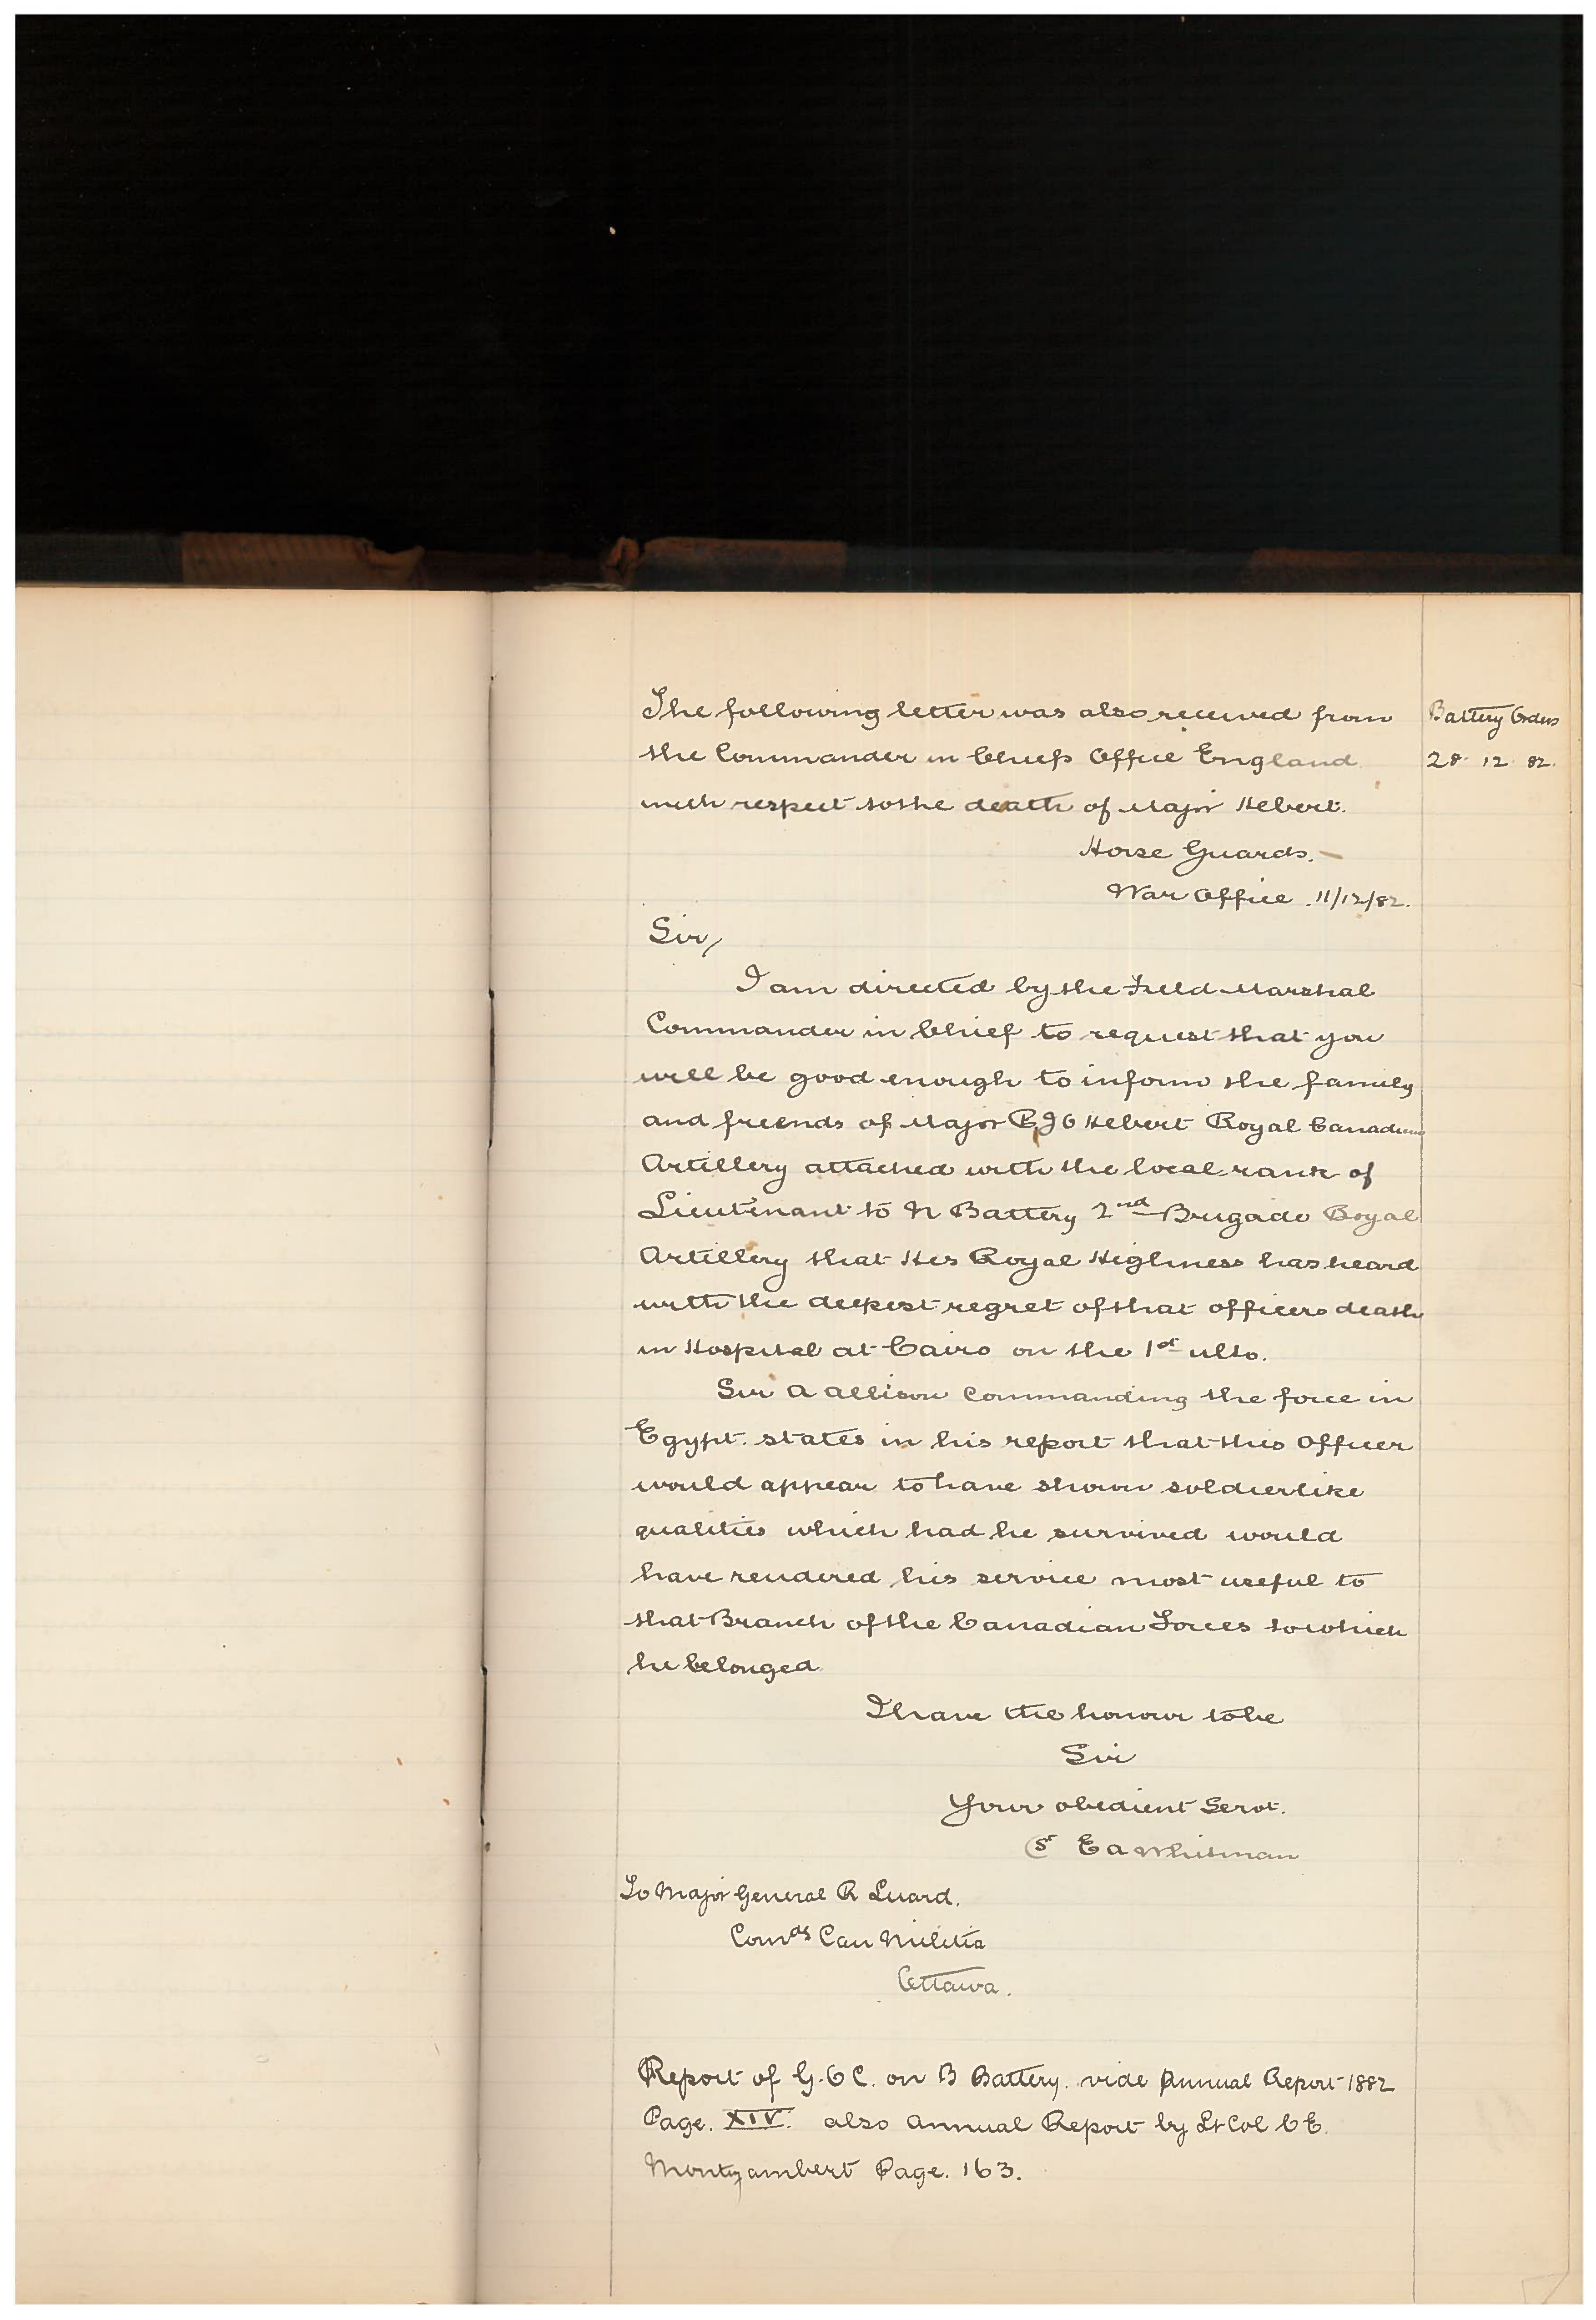 The following letter was also received from
the Commander in Chiefs Office England
with respect to the death of Major Hebert.
Battery Orders
28. 12. 82.
Horse Guards.
War Office. 11/12/82.
Sir,
I am directed by the Field Marshal
Commander in Chief to request that you
will be good enough to inform the family
and friends of Major Hebert Royal Canadian
Artillery attached with the local rank of
Lieutenant to N Battery 2nd Brigade Royal
Artillery that His Royal Highness has heard
with the deepest regret of that officers death
in Hospital at Cairo on the 1st ulto.
Sir A Allison Commanding the force in
Egypt. states in his report that this Officer
would appear to have shown soldierlike
qualities which had he survived would
have rendered his service most useful to
that Branch of the Canadian Forces to which
he belonged
I have the honour to be
Sir
Your obedient Servt.
(Sd E A Whitman
To Major General R Luard.
Comdg Can Militia
Ottawa.
Report of G.O C. on B Battery. vide Annual Report 1882
Page. XIV. also Annual Report by Lt Col C E.
Montizambert Page. 163.